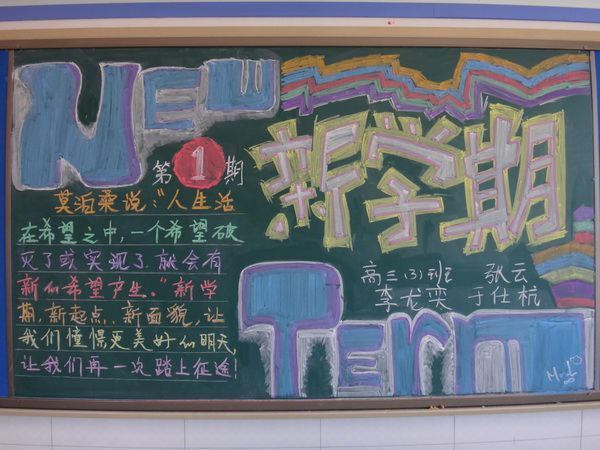 New
第1期
新学期
莫泊桑说:"人生活
在希望之中,一个希望破
灭了或实现了,就会有
新的希望产生。"新学
期,新起点,新面貌,让
我们憧憬更美好的明天,
让我们再一次踏上征途!
高三(3)班 张云
李龙奕 于仕杭
Term